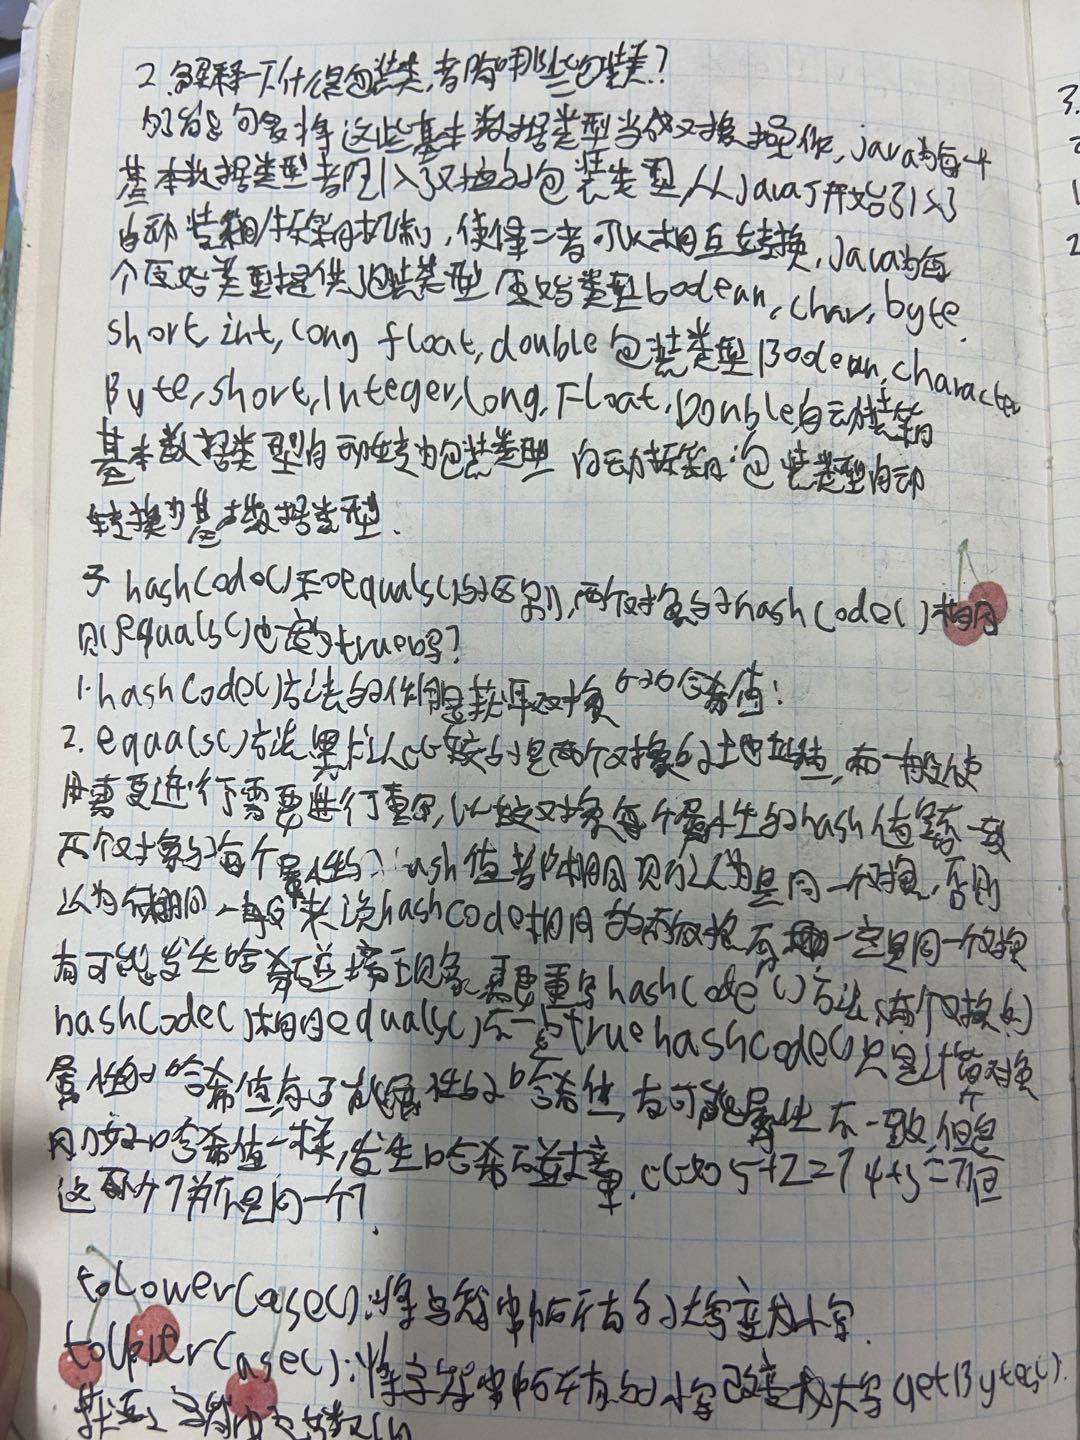 2.解释一下什么是包装类,都有哪些包装类?
为了能够将这些基本数据类型当成对象操作,java为每个
基本数据类型都引入了对应的包装类型,从Java5开始引入了
自动装箱/拆箱机制,使得二者可以相互转换,Java为每
个原始类型提供了包装类型 原始类型boolean,char,byte.
short,int,long float,double包装类型Boolean,character
Byte,short,Integer,Long,Float,Double自动装箱
基本数据类型自动转为包装类型 自动拆箱:包装类型自动
转换为基本数据类型.
hashCode()和equals()的区别,两个对象的hashCode()相同
则equals()也一定为true吗?
1.hashCode()方法的作用是获取对象的哈希值;
2.equals()方法默认比较的是两个对象的地址值,而一般使
用需要进行需要进行重写,比较对象每个属性的hash值是否一致
两个对象的每个属性的hash值都相同则认为是同一个对象,否则
认为不相同 一般来说hashCode相同的两个对象不一定是同一个对象
有可能发生哈希碰撞现象 需要重写hashCode()方法,两个对象的
hashCode()相同equals()不一定true hashCode()只是计算对象
属性的哈希值,有可能属性不一致,但是
刚好哈希值一样,发生哈希碰撞. 比如5+2=7 4+3=7但
这两个7并不是同一个7.
toLowerCase():将字符串中所有的大写变为小写.
toUpperCase():将字符串中所有的小写改变成大写 getBytes().